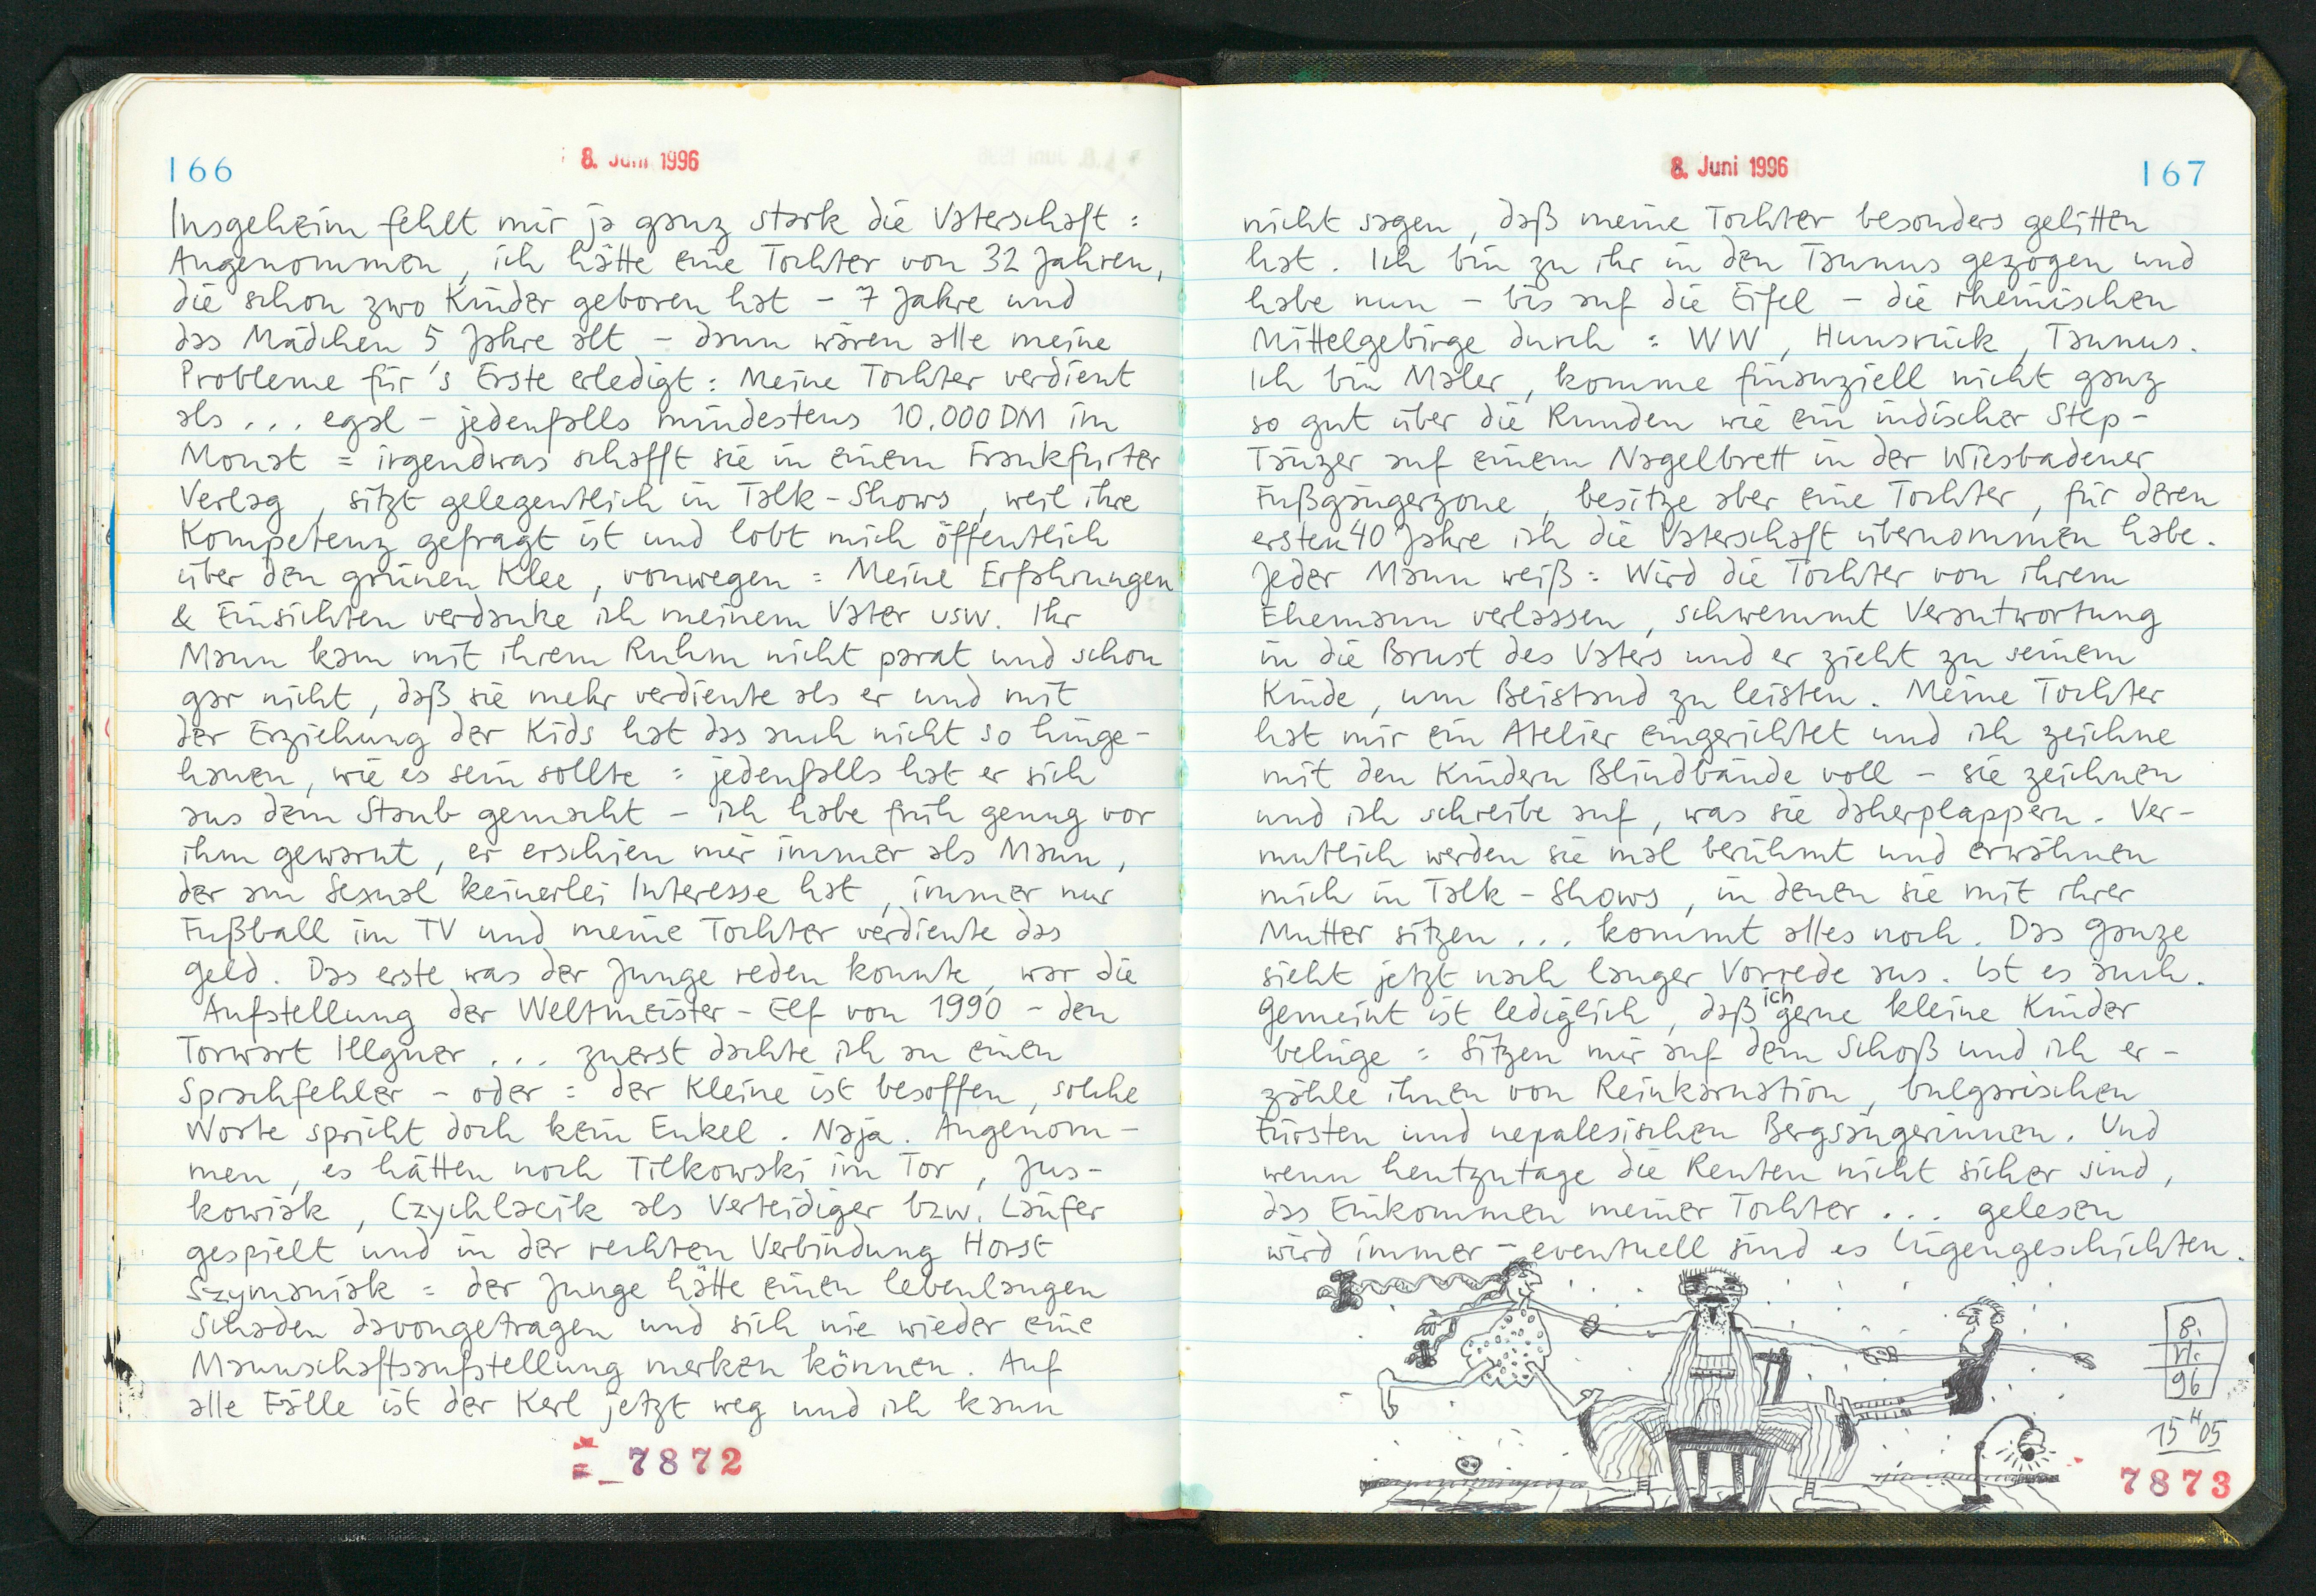 166
8. Juni 1996
Insgeheim fehlt mir ja ganz stark die Vaterschaft :
Angenommen, ich hätte eine Tochter von 32 Jahren,
die schon zwo Kinder geboren hat - 7 Jahre und
das Mädchen 5 Jahre alt - dann wären alle meine
Probleme für's Erste erledigt : Meine Tochter verdient
als ... egal - jedenfalls mindestens 10.000 DM im
Monat = irgendwas schafft sie in einem Frankfurter
Verlag, sitzt gelegentlich in Talk-Shows, weil ihre
Kompetenz gefragt ist und lobt mich öffentlich
über den grünen Klee, vonwegen = Meine Erfahrungen
& Einsichten verdanke ich meinem Vater usw. Ihr
Mann kam mit ihrem Ruhm nicht parat und schon
gar nicht, daß sie mehr verdiente als er und mit
der Erziehung der Kids hat das auch nicht so hinge-
hauen, wie es sein sollte = jedenfalls hat er sich
aus dem Staub gemacht - ich habe früh genug vor
ihm gewarnt, er erschien mir immer als Mann,
der am Sexual keinerlei Interesse hat, immer nur
Fußball im TV und meine Tochter verdiente das
Geld. Das erste was der Junge reden konnte, war die
Aufstellung der Weltmeister-Elf von 1990 - den
Torwart Illgner ... zuerst dachte ich an einen
Sprachfehler - oder = der Kleine ist besoffen, solche
Worte spricht doch kein Enkel. Naja. Angenom-
men, es hätten noch Tilkowski im Tor, Jus-
kowiak, Czychlacik als Verteidiger bzw. Läufer
gespielt und in der rechten Verbindung Horst
Szymaniak = der Junge hätte einen lebenlangen
Schaden davongetragen und sich nie wieder eine
Mannschaftsaufstellung merken können. Auf
alle Fälle ist der Kerl jetzt weg und ich kann
7872
8. Juni 1996
167
nicht sagen, daß meine Tochter besonders gelitten
hat. Ich bin zu ihr in den Taunus gezogen und
habe nun - bis auf die Eifel - die rheinischen
Mittelgebirge durch : WW, Hunsrück, Taunus.
Ich bin Maler, komme finanziell nicht ganz
so gut über die Runden wie ein indischer Step-
Tänzer auf einem Nagelbrett in der Wiesbadener
Fußgängerzone, besitze aber eine Tochter, für deren
ersten 40 Jahre ich die Vaterschaft übernommen habe.
Jeder Mann weiß : Wird die Tochter von ihrem
Ehemann verlassen, schwemmt Verantwortung
in die Brust des Vaters und er zieht zu seinem
Kinde, um Beistand zu leisten. Meine Tochter
hat mir ein Atelier eingerichtet und ich zeichne
mit den Kindern Blindbände voll - sie zeichnen
und ich schreibe auf, was sie daherplappern. Ver-
mutlich werden sie mal berühmt und erwähnen
mich in Talk-Shows, in denen sie mit ihrer
Mutter sitzen ... kommt alles noch. Das Ganze
sieht jetzt nach langer Vorrede aus. Ist es auch.
Gemeint ist lediglich, daß ich gerne kleine Kinder
belüge = Sitzen mir auf dem Schoß und ich er-
zähle ihnen von Reinkarnation, bulgarischen
Fürsten und nepalesischen Bergsängerinnen. Und
wenn heutzutage die Renten nicht sicher sind,
das Einkommen meiner Tochter ... gelesen
wird immer - eventuell sind es Lügengeschichten.
8.
VI.
96
15 H 05
7873